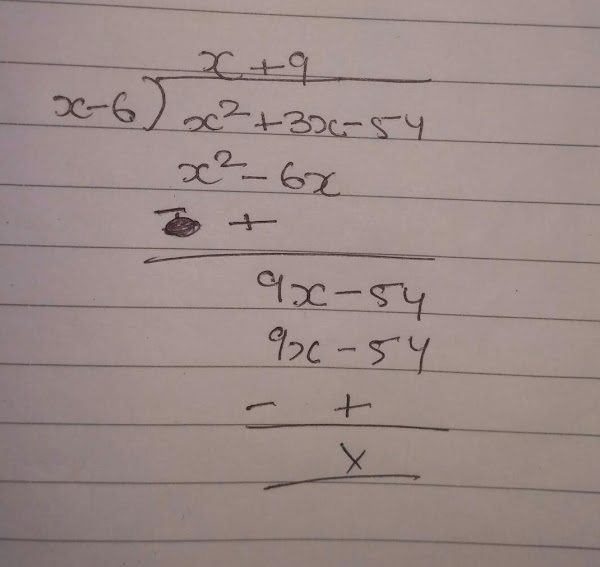 x + 9
x - 6 ) x² + 3x - 54
x² - 6x
- +
9x - 54
9x - 54
- +
x